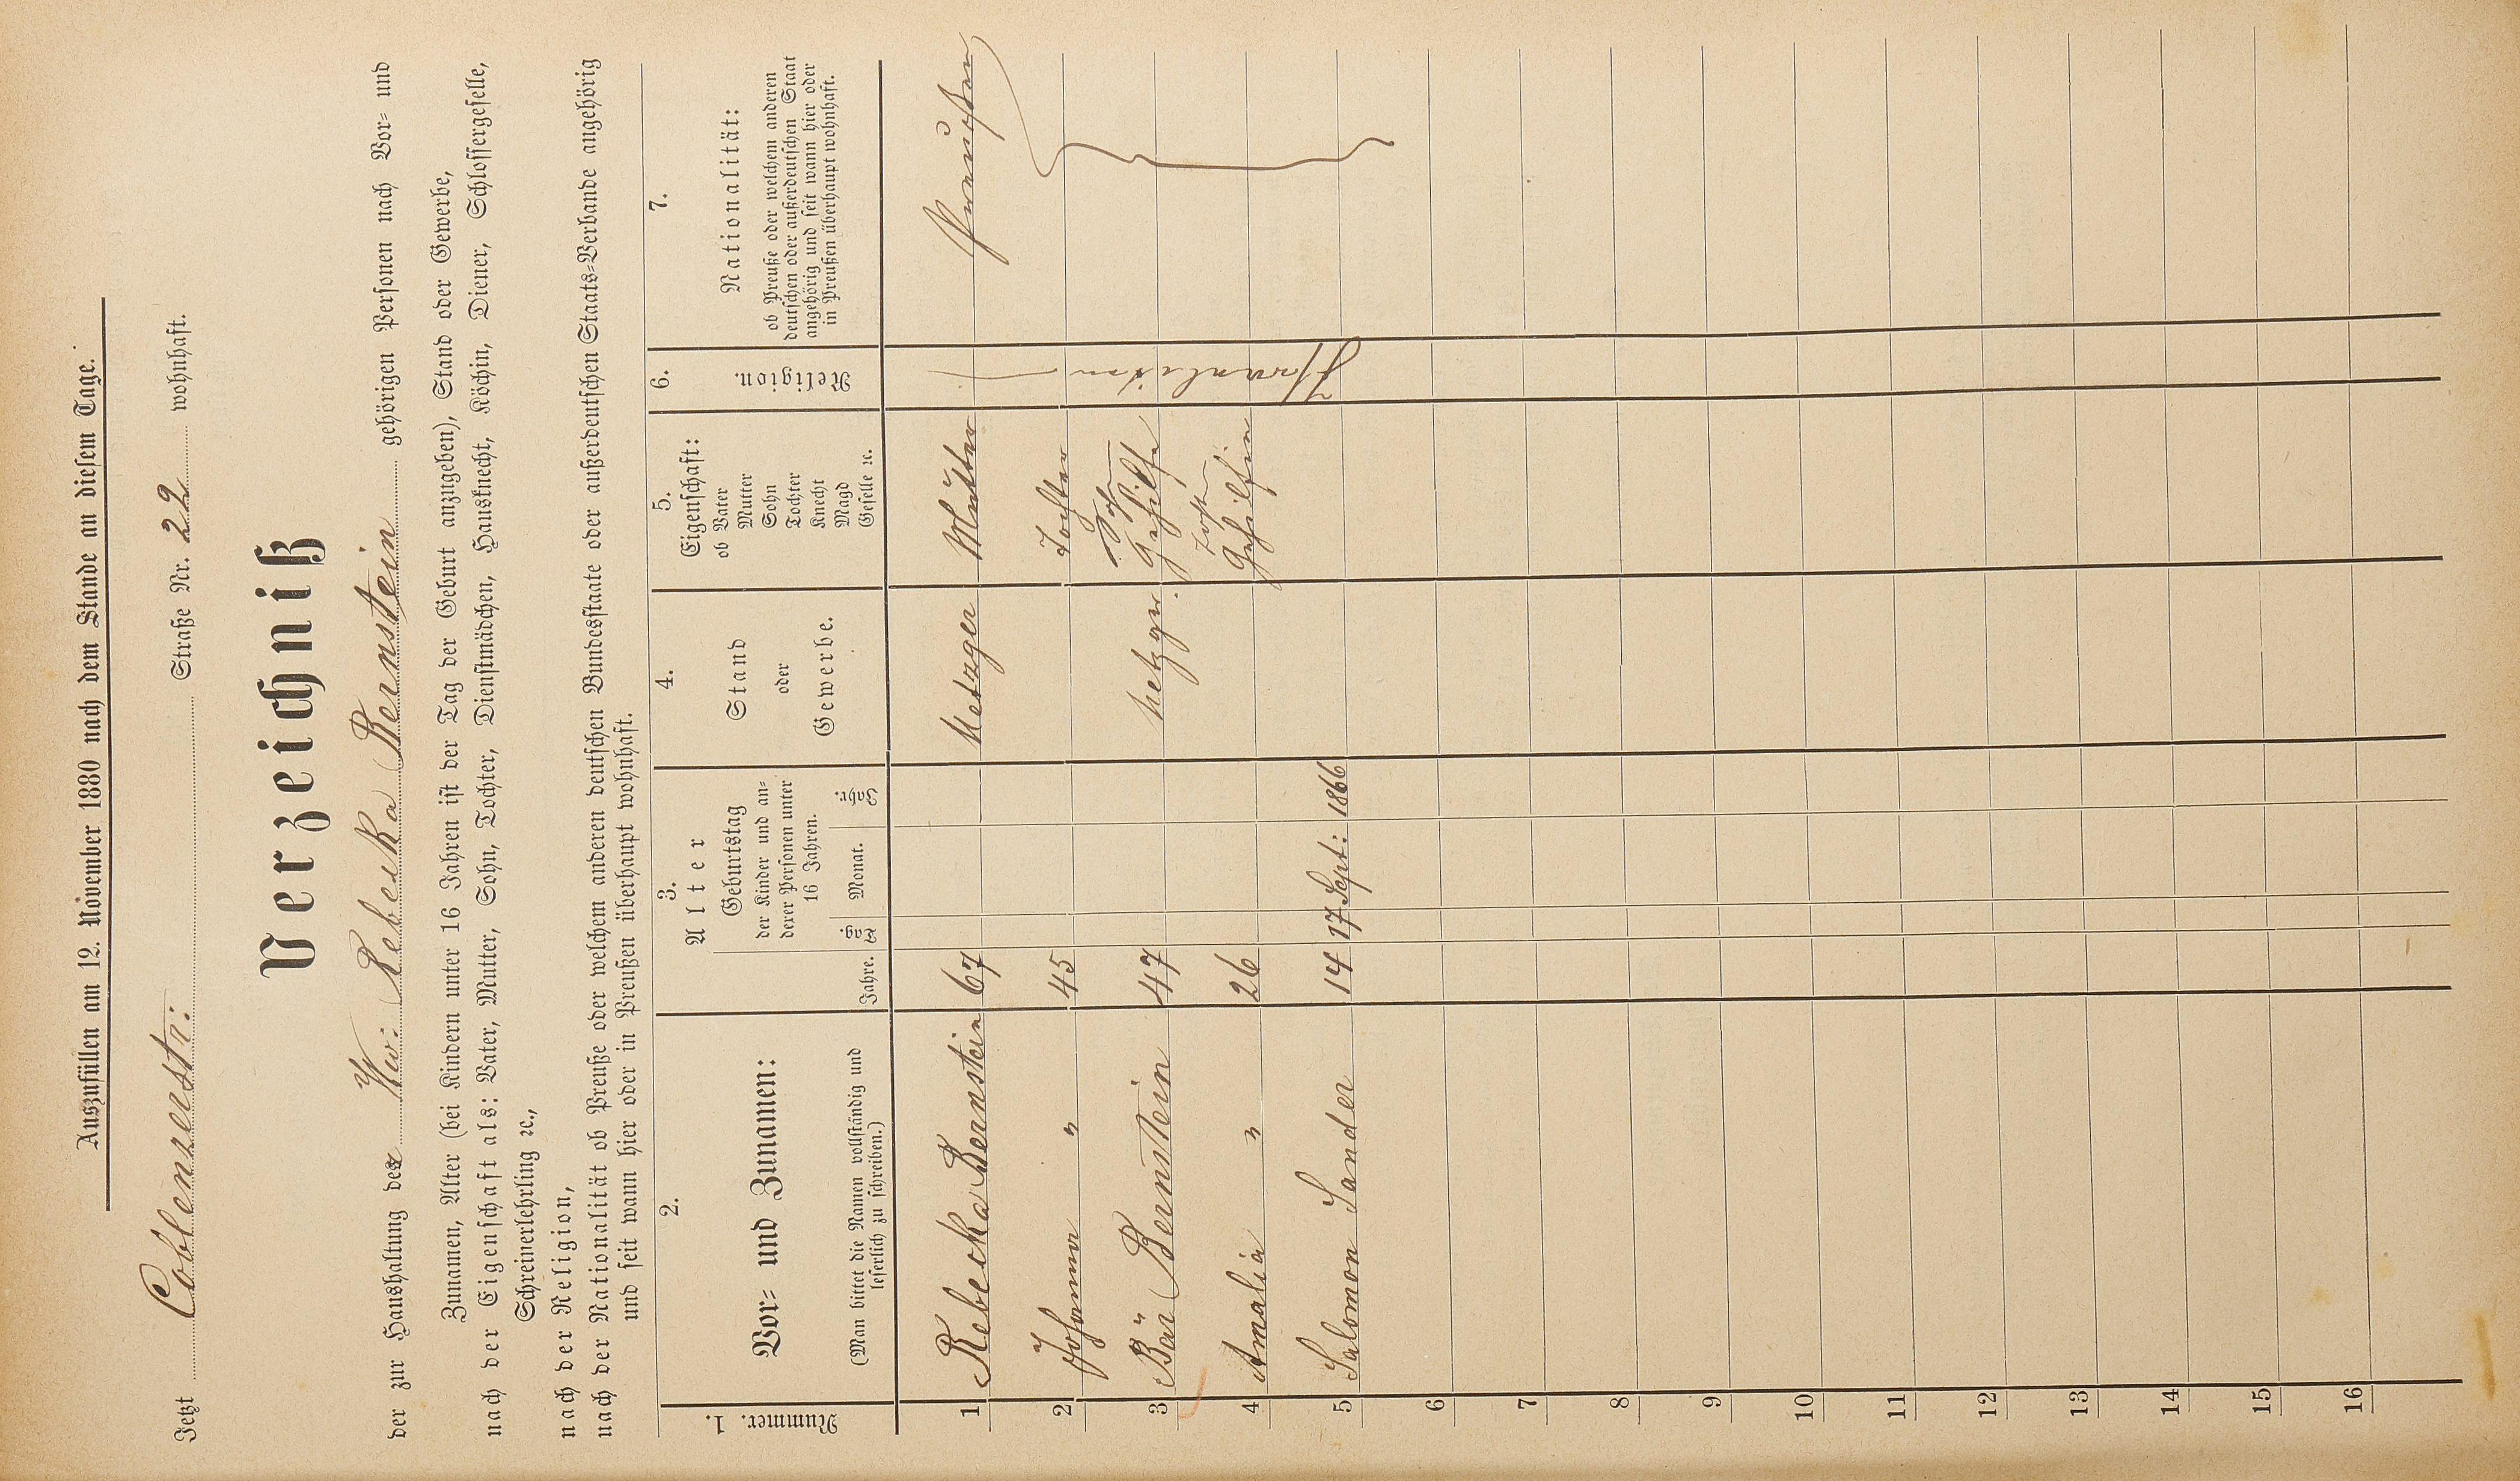 Auszufüllen am 12. November 1880 nach dem Stande an diesem Tage.
Jetzt Coblenzerstr: Straße Nr. 22 wohnhaft.
Verzeichniß
der zur Haushaltung der Ww: Rebecka Bernstein gehörigen Personen nach Vor- und
Zunamen, Alter (bei Kindern unter 16 Jahren ist der Tag der Geburt anzugeben), Stand oder Gewerbe,
nach der Eigenschaft als: Vater, Mutter, Sohn, Tochter, Dienstmädchen, Hausknecht, Köchin, Diener, Schlossergeselle,
Schreinerlehrling ꝛc.,
nach der Religion,
nach der Nationalität ob Preuße oder welchem anderen deutschen Bundesstaate oder außerdeutschen Staats-Verbande angehörig
und seit wann hier oder in Preußen überhaupt wohnhaft.
1. Nummer.
2.
Vor- und Zunamen:
(Man bittet die Namen vollständig und
leserlich zu schreiben.)
3.
Alter
Jahre.
Geburtstag
der Kinder und an-
derer Personen unter
16 Jahren.
Tag. Monat. Jahr.
4.
Stand
oder
Gewerbe.
5.
Eigenschaft:
ob Vater
Mutter
Sohn
Tochter
Knecht
Magd
Geselle ꝛc.
6.
Religion.
7.
Nationalität:
ob Preuße oder welchem anderen
deutschen oder außerdeutschen Staat
angehörig und seit wann hier oder
in Preußen überhaupt wohnhaft.
1 Rebecka Bernstein 67 Metzger Mutter Preußen
2 Johanna " 45 Tochter
3 Bär Bernstein 47 Metzger. Sohn Gehilfe
4 Amalia " 26 Gehilfin
5 Salomon Sander 14 17 Sept: 1866
Israeliten
6
7
8
9
10
11
12
13
14
15
16